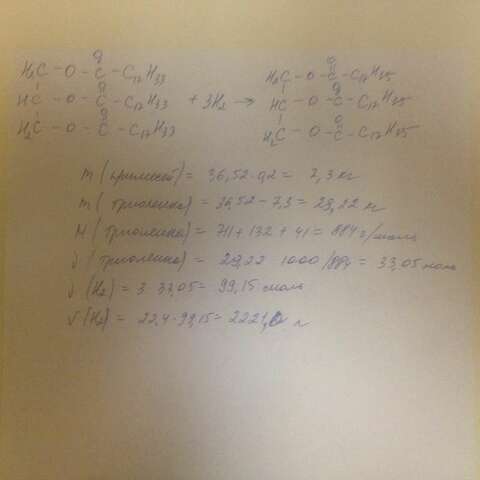 H₂C – O – C – C₁₇H₃₃ H₂C – O – C – C₁₇H₃₅
HC – O – C – C₁₇H₃₃ + 3H₂ → HC – O – C – C₁₇H₃₅
H₂C – O – C – C₁₇H₃₃ H₂C – O – C – C₁₇H₃₅
m (примесей) = 36,52 · 0,2 = 7,3 кг
m (триолеина) = 36,52 – 7,3 = 29,22 кг
M (триолеина) = 711 + 132 + 41 = 884 г/моль
ν (триолеина) = 29,22 · 1000/884 = 33,05 моль
ν (H₂) = 3 · 33,05 = 99,15 моль
V (H₂) = 22,4 · 99,15 = 2221,0 л